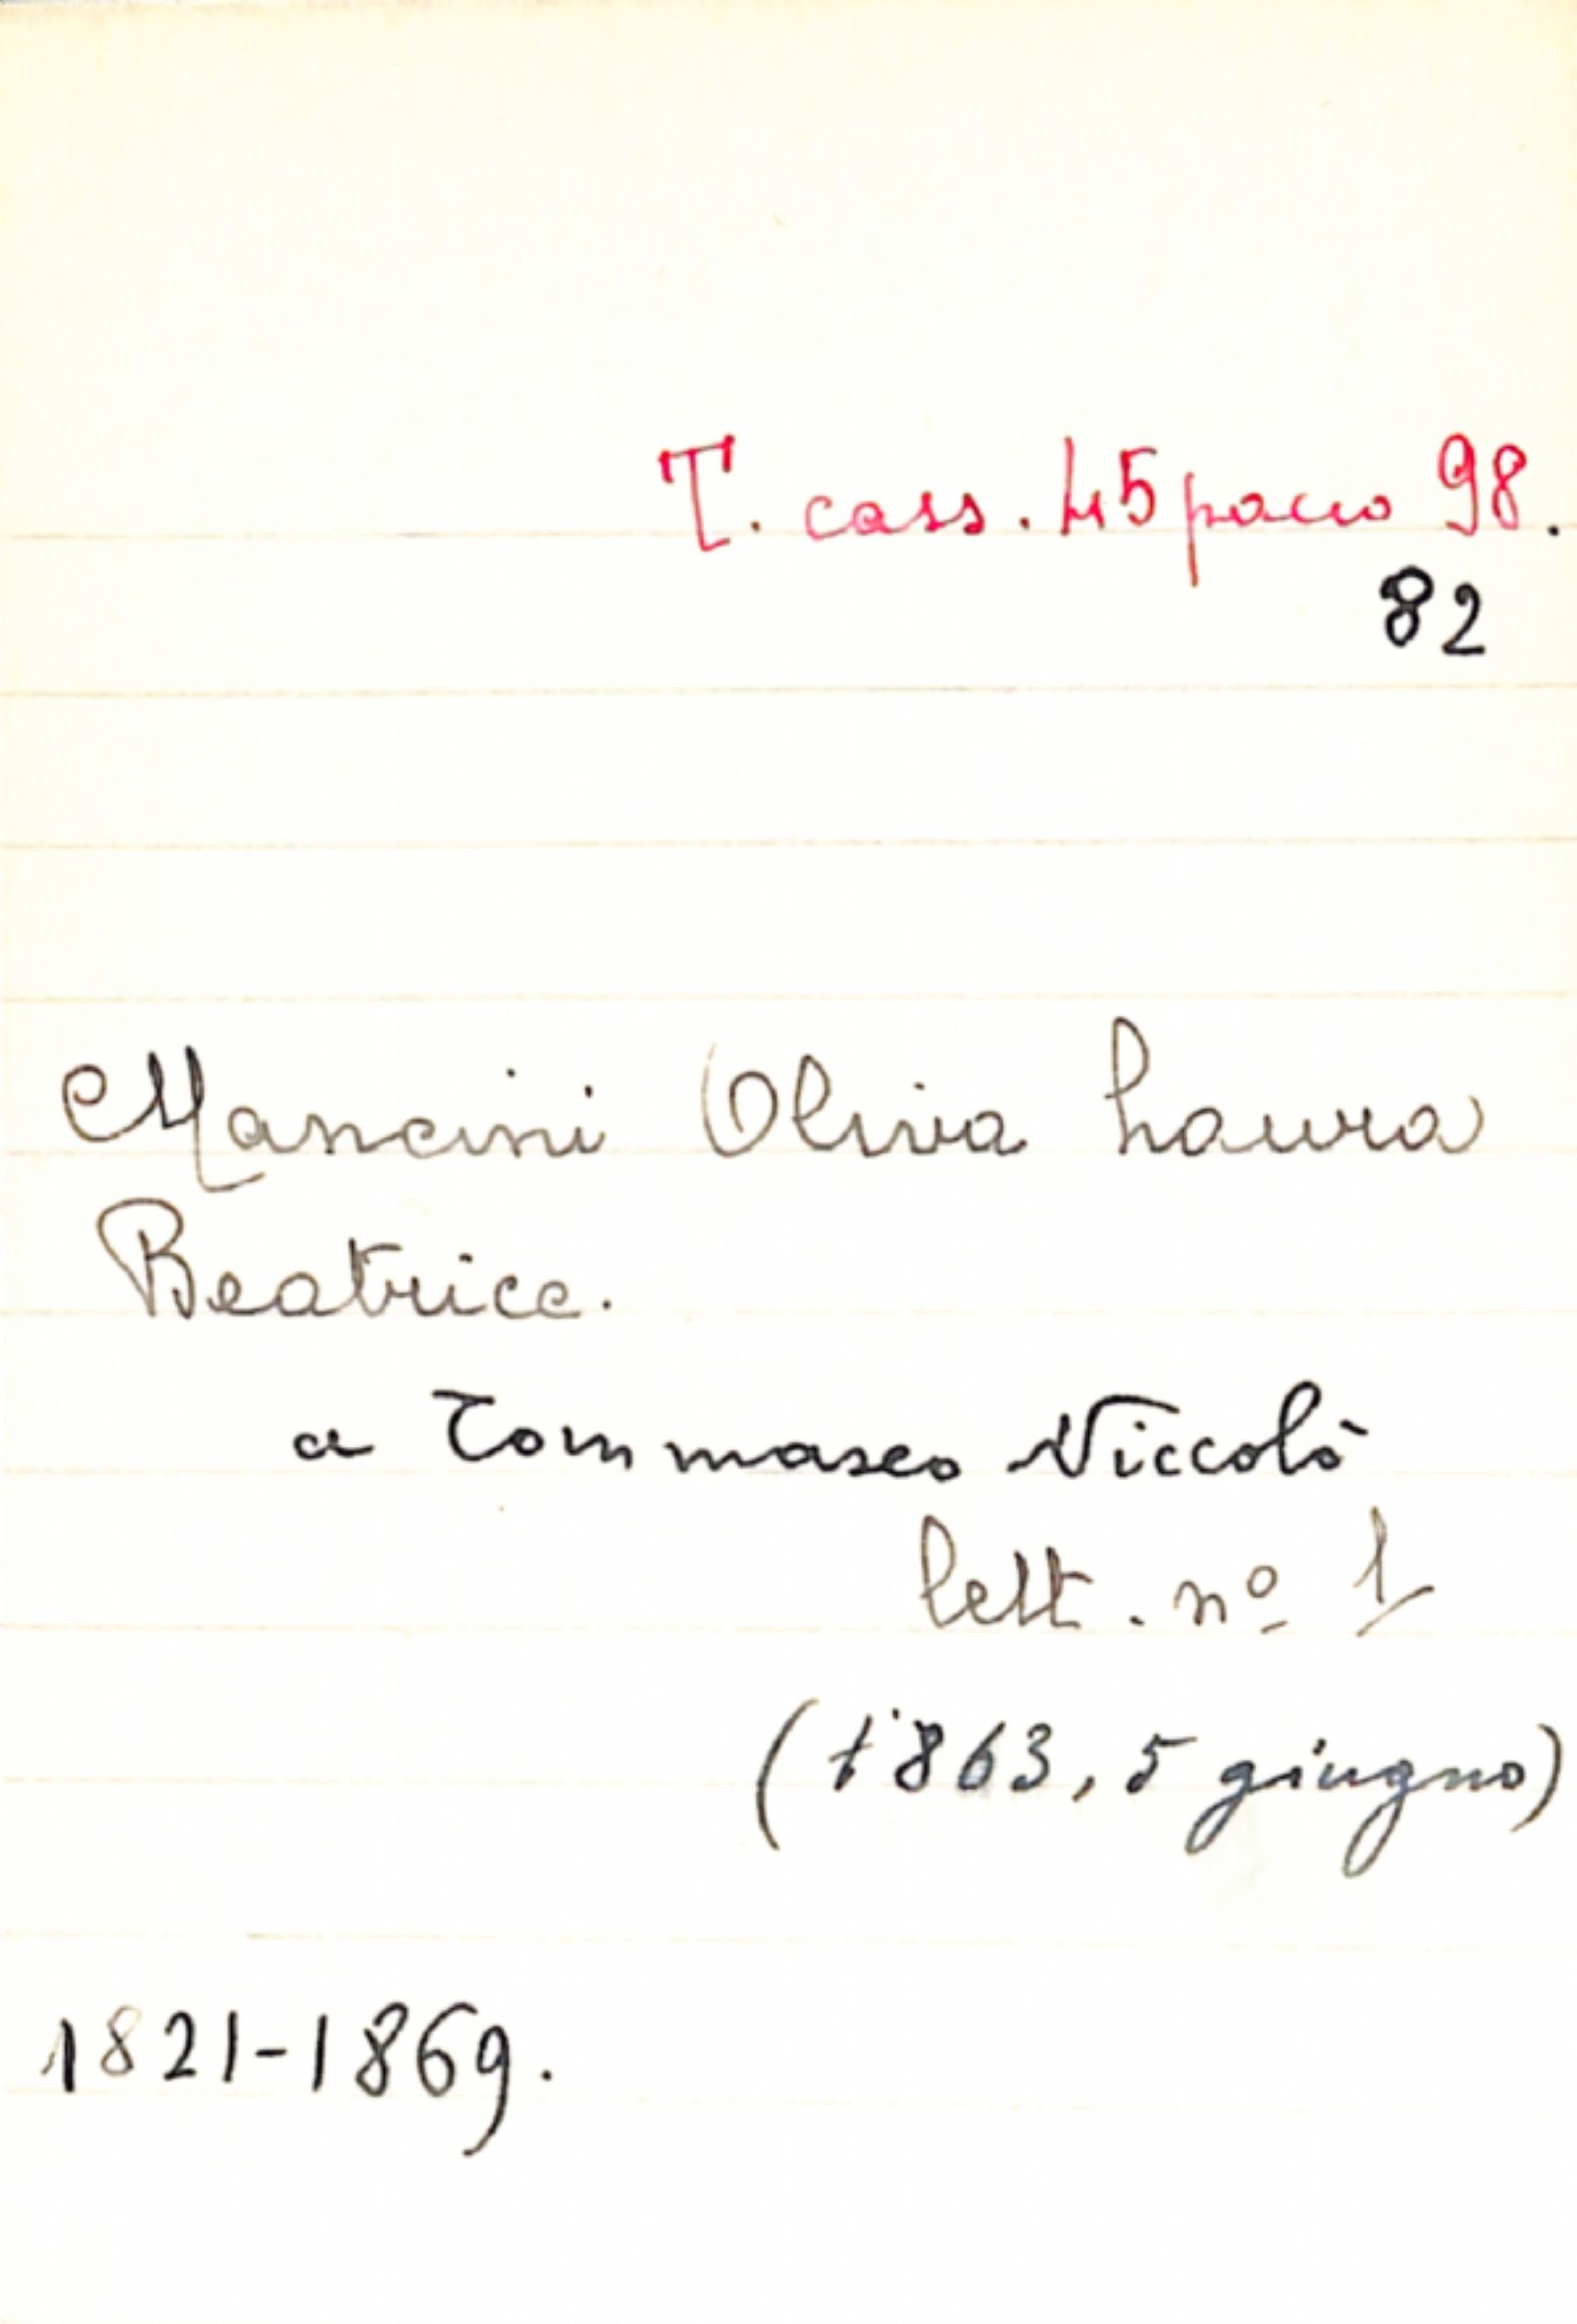 T. cass. 45 pacco 98.
82
Mancini Oliva Laura
Beatrice.
a Tommaseo Niccolò
lett. nº 1
(1863, 5 giugno)
1821-1869.